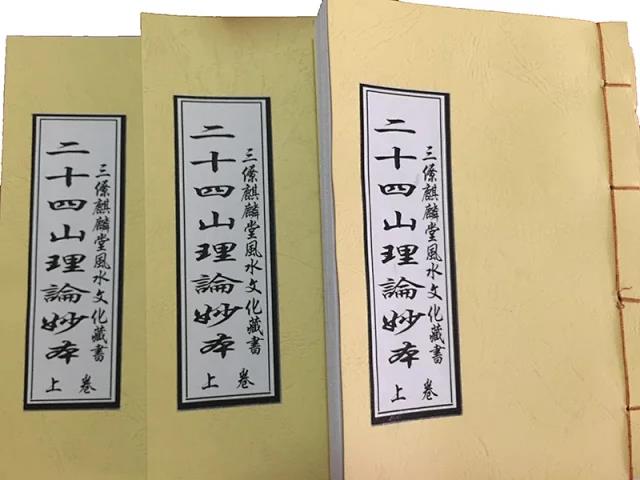 三僚麒麟堂風水文化藏書
二十四山理論妙本
上卷
三僚麒麟堂風水文化藏書
二十四山理論妙本
上卷
三僚麒麟堂風水文化藏書
二十四山理論妙本
上卷